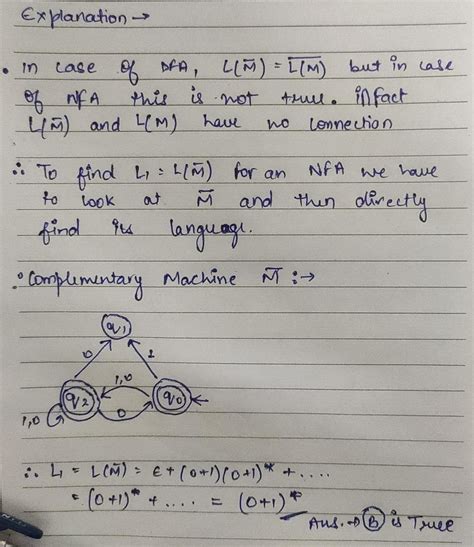 Explanation →
• In case of DFA, L(M̅) = \overline{L(M)} but in case
of NFA this is not true. Infact
L(M̅) and L(M) have no connection
∴ To find L₁ = L(M̅) for an NFA we have
to look at M̅ and then directly
find its language.
∴ Complementary Machine M̅ :→
q₁
0 1
1,0
q₂ q₀
1,0 0
∴ L₁ = L(M̅) = ϵ + (0+1)(0+1)* + ....
= (0+1)* + .... = (0+1)*
Ans. → B is True